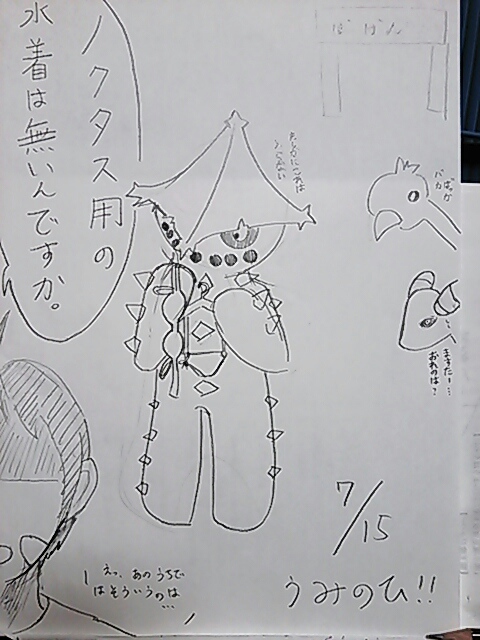 ノクタス用の
水着は無いんですか。
ばばん
ばっか
バカ
ますたー…
おれのは?
えっ、あのうちで
はそういうのは…
7/15
うみのひ!!